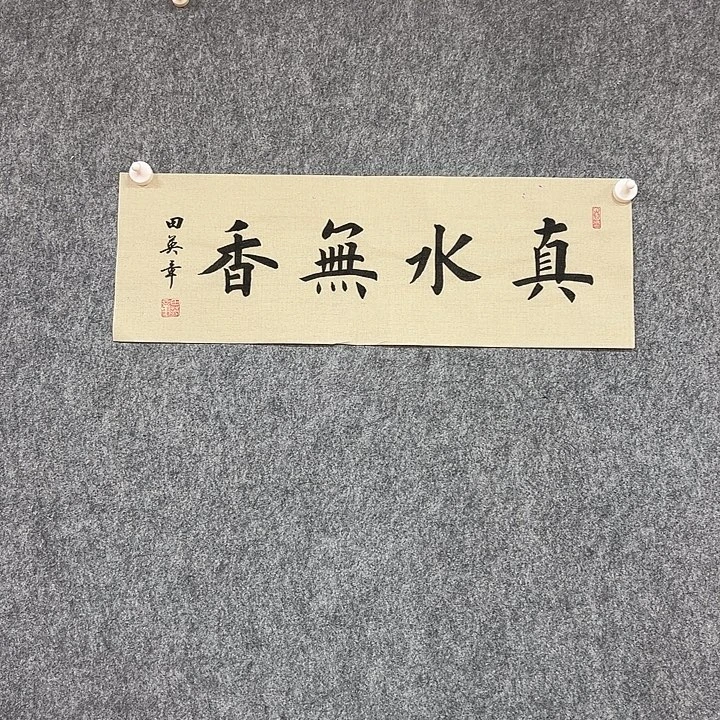 真水無香
田英章